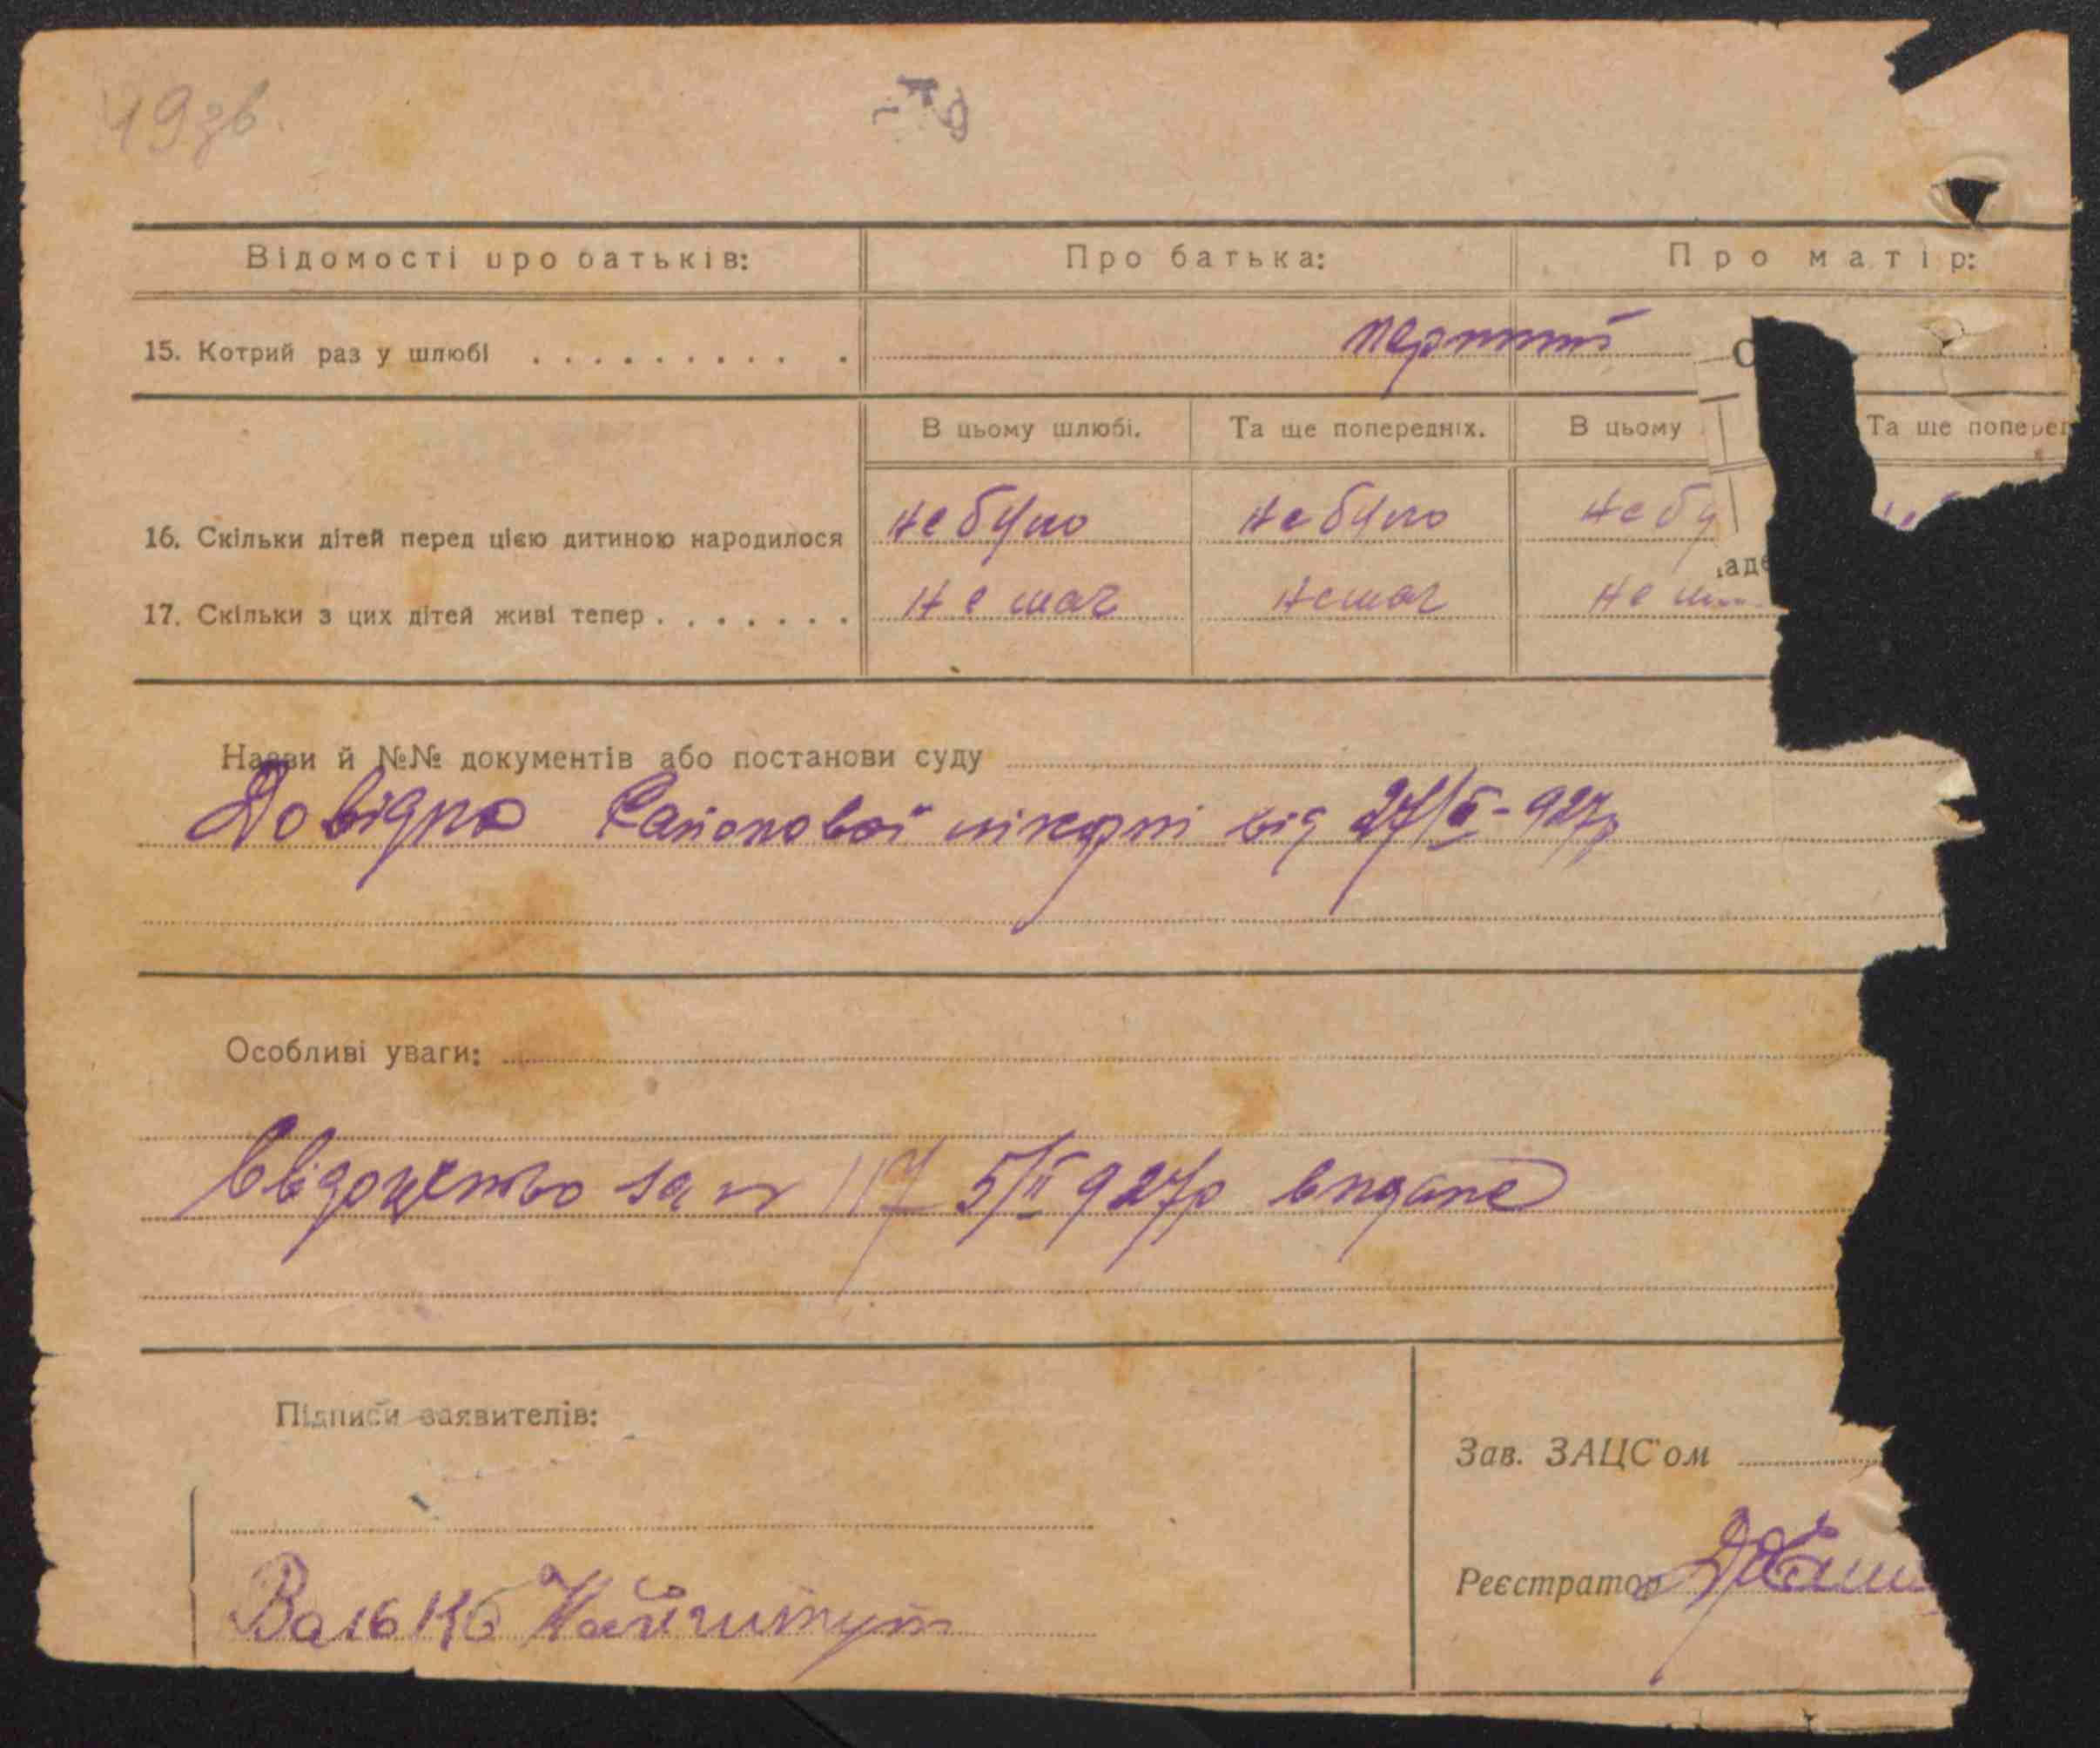 19 зв.
Відомості про батьків: Про батька: Про матір:
15. Котрий раз у шлюбі . . . . . . . . . . перший
В цьому шлюбі. Та ще попередніх. В цьому Та ще поперед
16. Скільки дітей перед цією дитиною народилося не було не було не бу
17. Скільки з цих дітей живі тепер . . . . . . . не має немає не
Назви й №№ документів або постанови суду
Довідка Районової лікарні від 27/II-927р
Особливі уваги:
Свідоцтво за № 117 5/II 927р видане
Підписи заявителів:
Зав. ЗАЦС'ом
Реєстратор
Валько